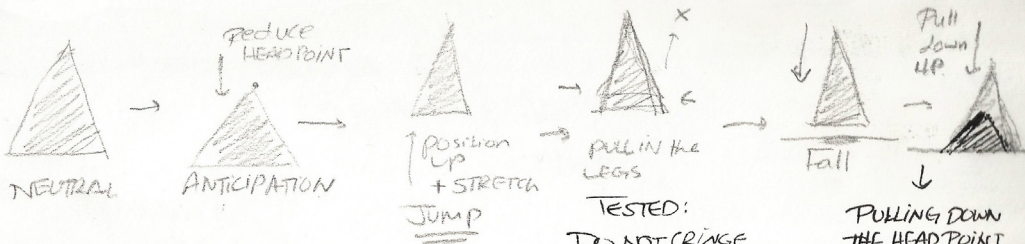 NEUTRAL
Reduce
HEADPOINT
ANTICIPATION
POSITION
UP
+ STRETCH
JUMP
X
PULL IN the
LEGS
TESTED:
DO NOT CRINGE
Fall
Pull
down
HP
PULLING DOWN
THE HEADPOINT